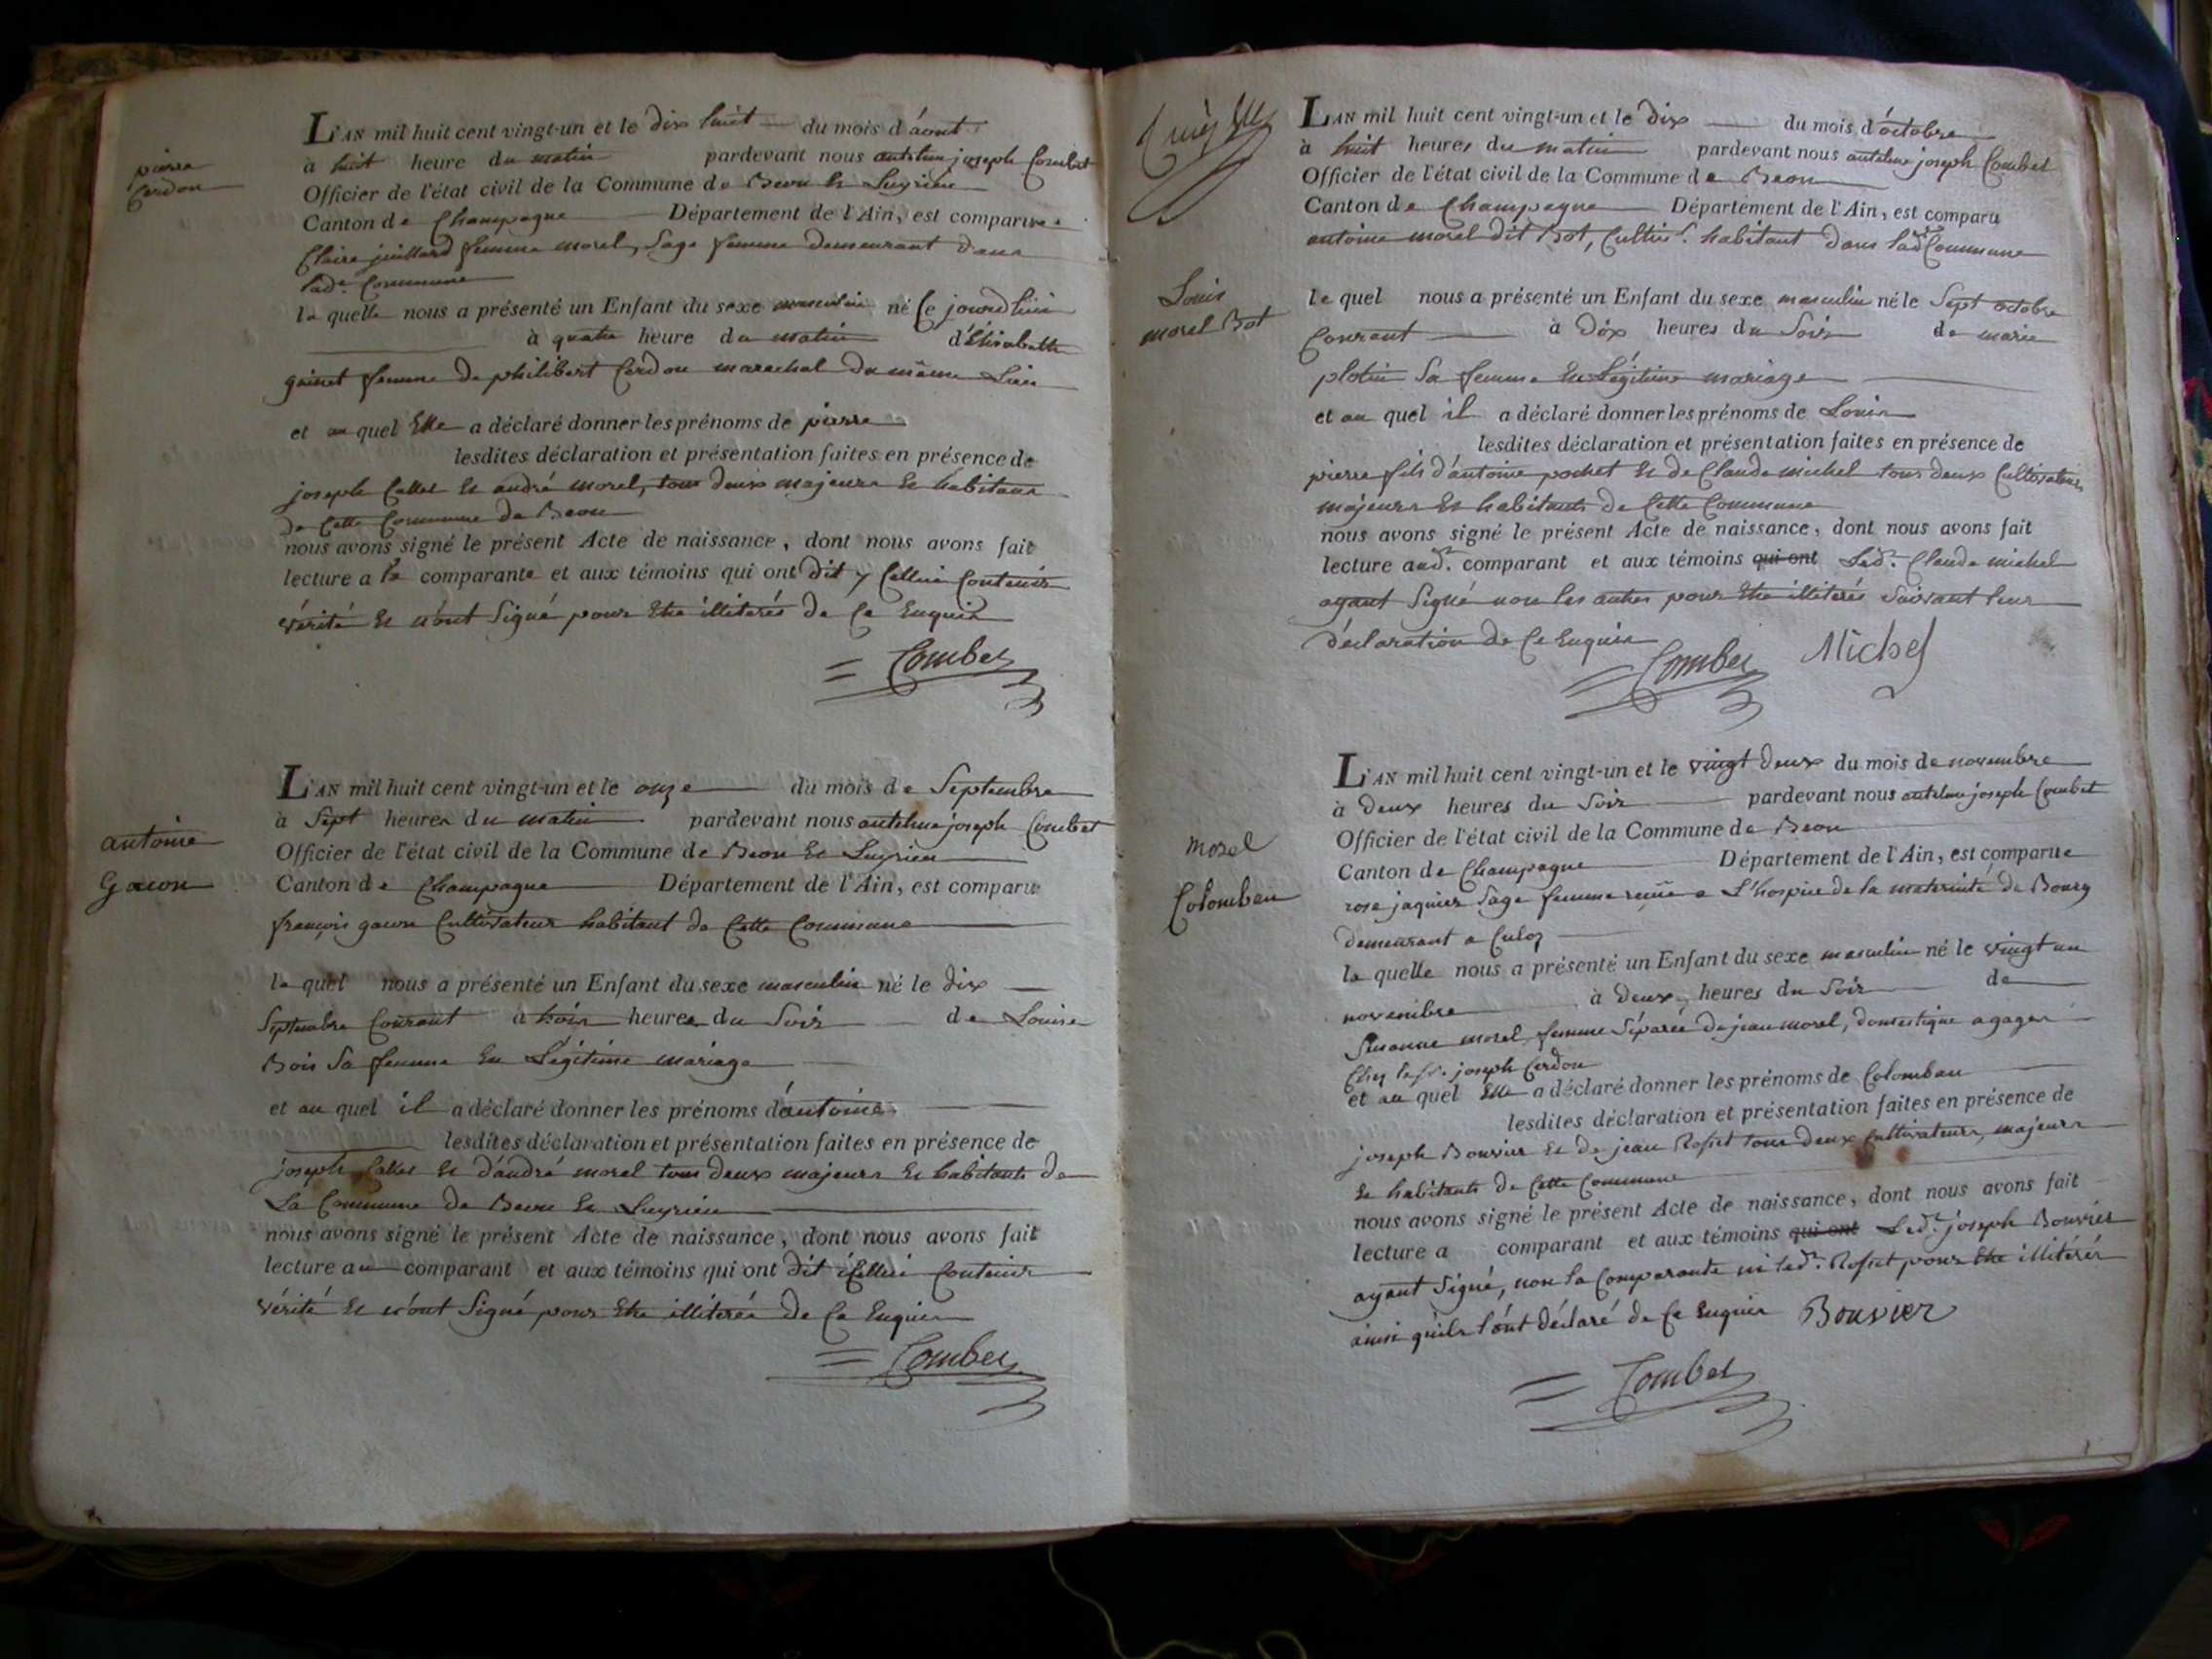 pierre
Cerdon
L'AN mil huit cent vingt-un et le dix huit du mois d'aout
à huit heure du matin pardevant nous antelme joseph Combet
Officier de l'état civil de la Commune de Beon & Luyrieu
Canton de Champagne Département de l'Ain, est comparue
Claire juillard femme morel, Sage femme demeurant dans
lade. Commune
la quelle nous a présenté un Enfant du sexe masculin né Ce jourd'hui
à quatre heure du matin d'Elisabeth
guinet femme de philibert Cerdon marechal du même Lieu
et au quel Elle a déclaré donner les prénoms de pierre
lesdites déclaration et présentation faites en présence de
joseph Callet & andré morel, tous deux majeurs & habitans
de Cette Commune de Beon
nous avons signé le présent Acte de naissance, dont nous avons fait
lecture a la comparante et aux témoins qui ont dit y Cellui Contenir
vérité & n'ont Signé pour Etre illiterés de Ce Enquis
Combet
antoine
Gacon
L'AN mil huit cent vingt-un et le onze du mois de Septembre
à Sept heures du matin pardevant nous antelme joseph Combet
Officier de l'état civil de la Commune de Beon & Luyrieu
Canton de Champagne Département de l'Ain, est comparu
françois gacon Cultivateur habitant de Cette Commune
le quel nous a présenté un Enfant du sexe masculin né le dix
Septembre Courant à trois heures du Soir de Louise
Bois Sa femme En Légitime mariage
et au quel il a déclaré donner les prénoms d'antoine
lesdites déclaration et présentation faites en présence de
joseph Callet & d'andré morel tous deux majeurs & habitants de
La Commune de Beon & Luyrieu
nous avons signé le présent Acte de naissance, dont nous avons fait
lecture au comparant et aux témoins qui ont dit iCellui Contenir
vérité & n'ont Signé pour Etre illiterés de Ce Enquis
Combet
Louis
morel Bot
L'AN mil huit cent vingt-un et le dix du mois d'octobre
à huit heures du matin pardevant nous antelme joseph Combet
Officier de l'état civil de la Commune de Beon
Canton de Champagne Département de l'Ain, est comparu
antoine morel dit Bot, Cultivr. habitant dans lade Commune
le quel nous a présenté un Enfant du sexe masculin né le Sept octobre
Courant à dix heures du Soir de marie
plotin Sa femme En Légitime mariage
et au quel il a déclaré donner les prénoms de Louis
lesdites déclaration et présentation faites en présence de
pierre fils d'antoine pochet & de Claude michel tous deux Cultivateurs
majeurs & habitants de Cette Commune
nous avons signé le présent Acte de naissance, dont nous avons fait
lecture aud. comparant et aux témoins qui ont Led. Claude michel
ayant Signé non les autres pour Etre illiterés Suivant leur
déclaration de Ce Enquis
Combet Michel
morel
Colomban
L'AN mil huit cent vingt-un et le vingt deux du mois de novembre
à deux heures du Soir pardevant nous antelme joseph Combet
Officier de l'état civil de la Commune de Beon
Canton de Champagne Département de l'Ain, est comparue
rose jaquier Sage femme a L'hospice de la maternité de Bourg
demeurant a Culoz
la quelle nous a présenté un Enfant du sexe masculin né le vingt un
novembre à deux heures du Soir de
Susanne morel femme Séparée de jean morel, domestique a gages
Chez le Sr. joseph Cerdon
et au quel Elle a déclaré donner les prénoms de Colomban
lesdites déclaration et présentation faites en présence de
joseph Bouvier & de jean Rosset tous deux Cultivateurs, majeurs
& habitants de Cette Commune
nous avons signé le présent Acte de naissance, dont nous avons fait
lecture a comparant et aux témoins qui ont Led. joseph Bouvier
ayant Signé, non la Comparante ni led. Rosset pour Etre illitérés
ainsi qu'ils l'ont déclaré de Ce Enquis Bouvier
Combet